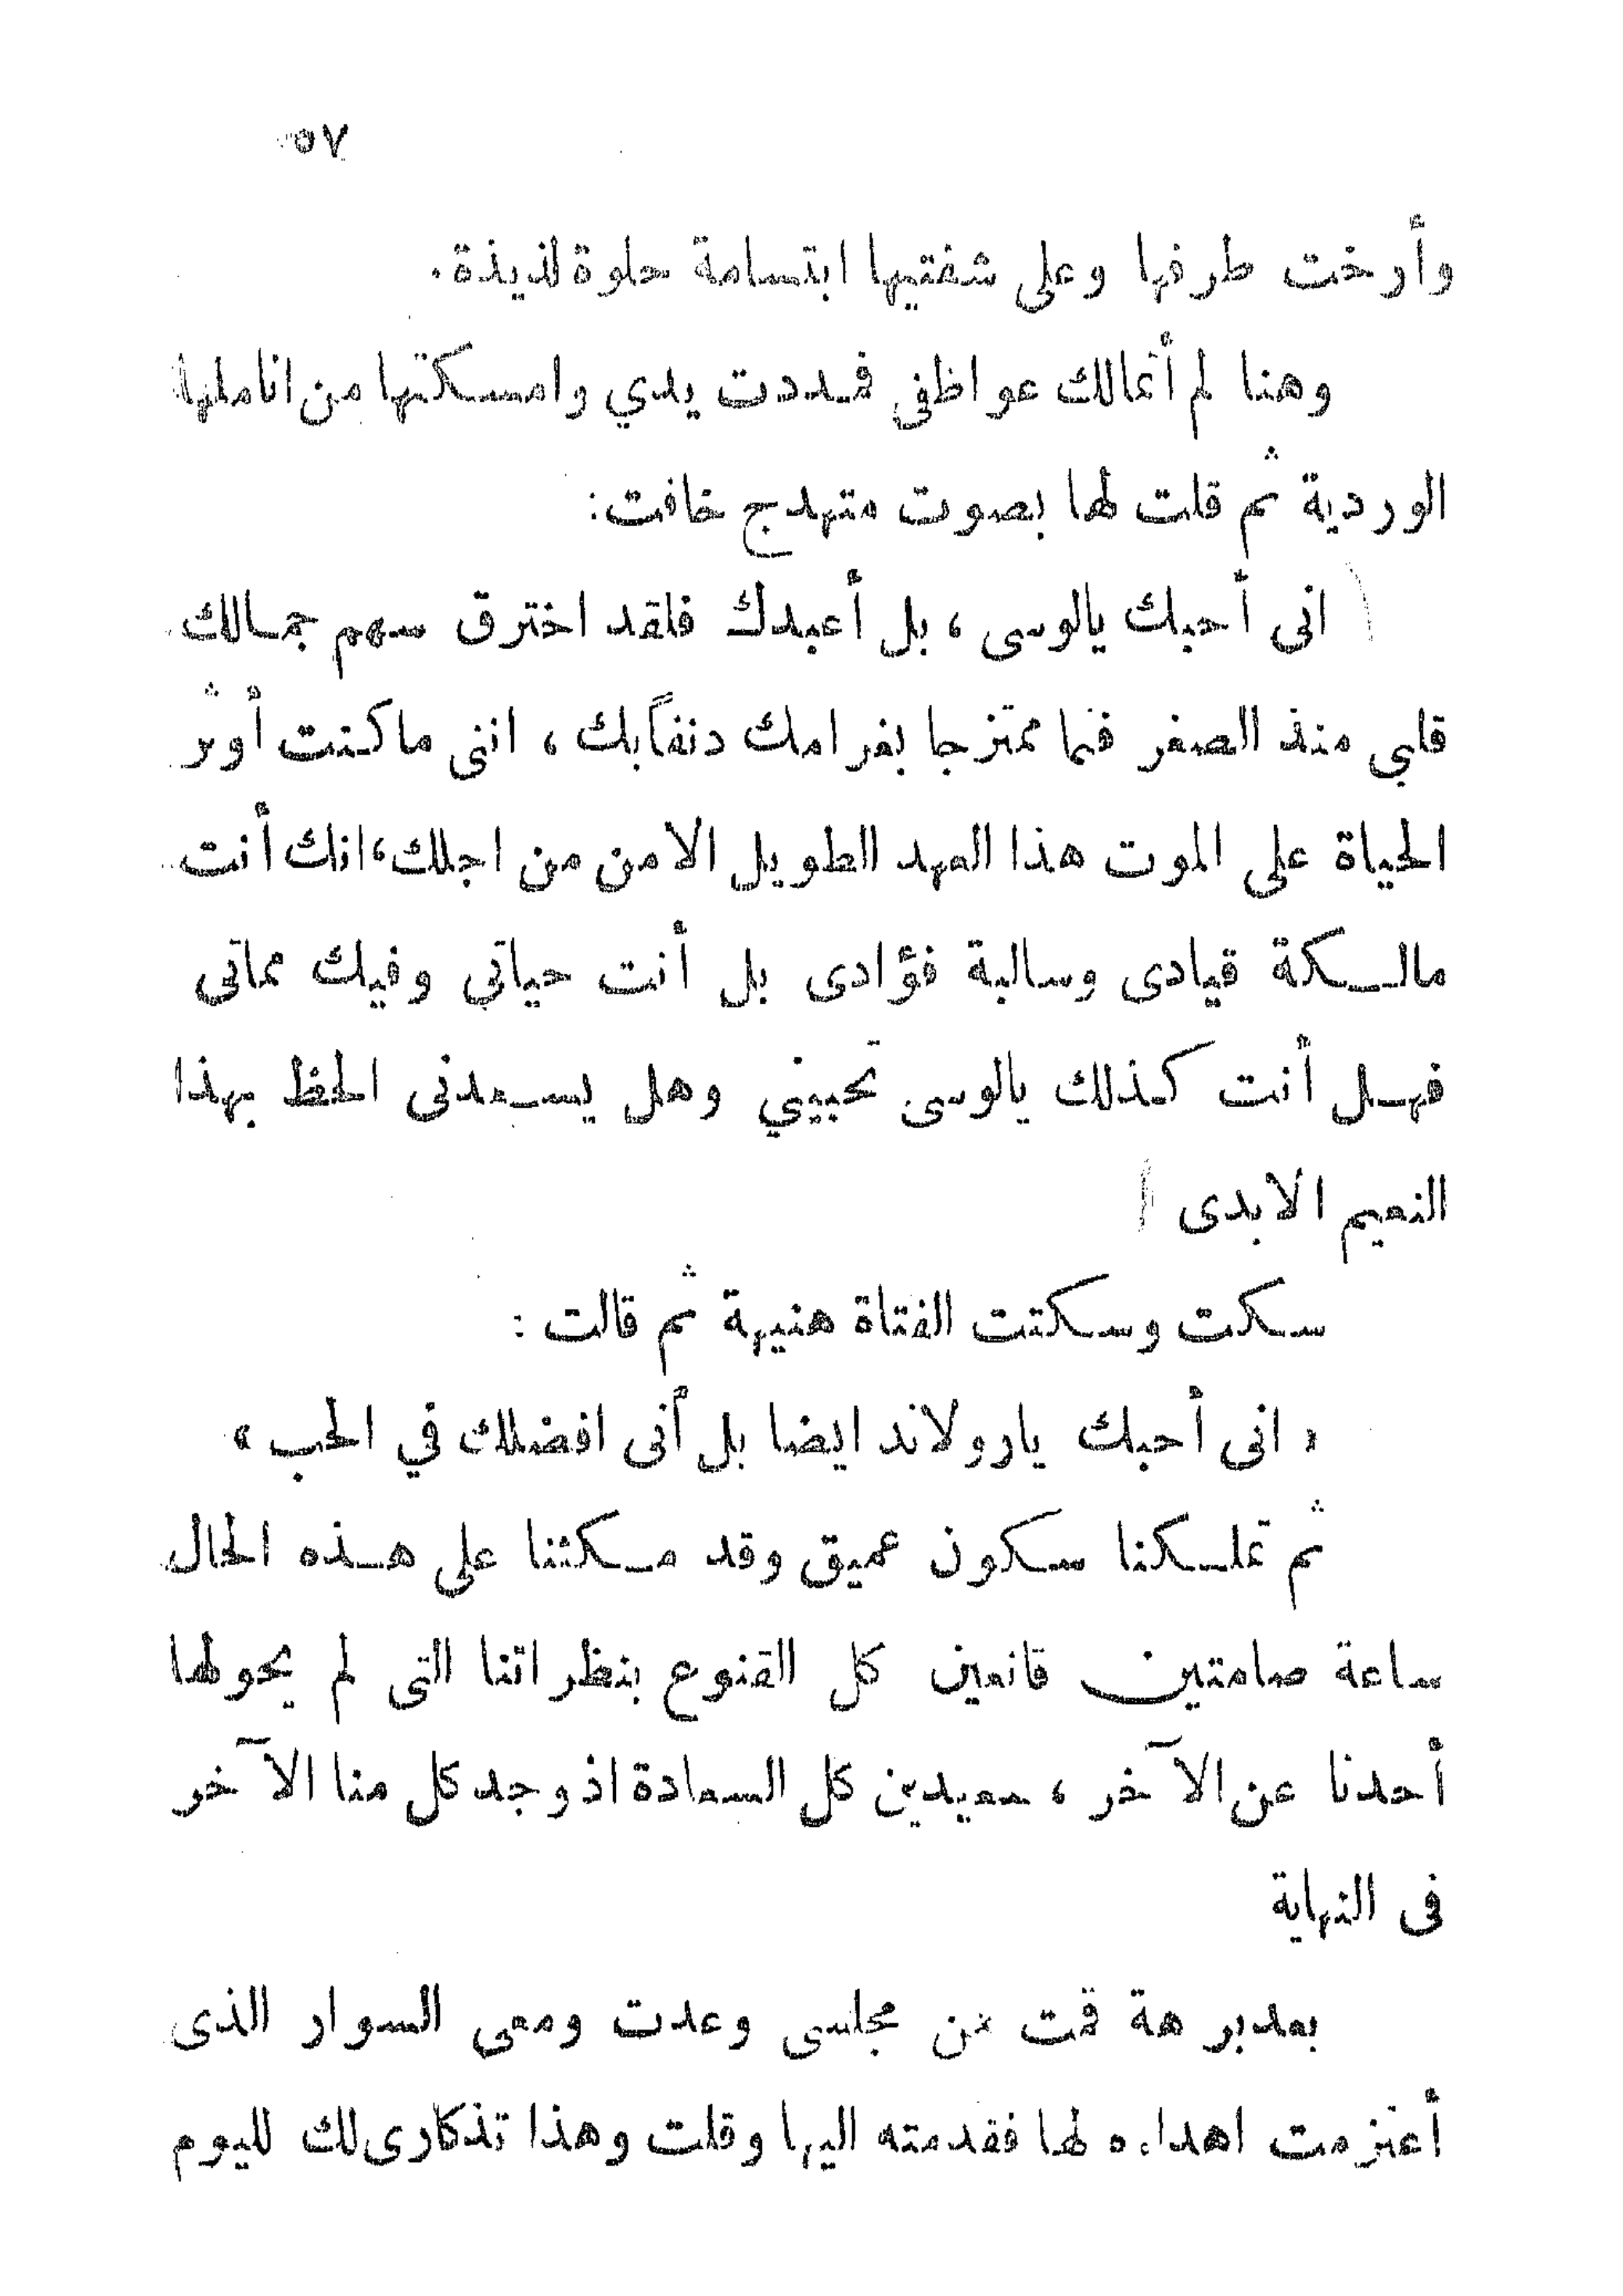 ٥٧
وأرخت طرفها وعلى شفتيها ابتسامة حلوة لذيذة .
وهنا لم أتمالك عواطفى فمددت يدي وامسكتها من اناملها
الوردية ثم قلت لها بصوت متهدج خافت :
انى أحبك يالوسى ، بل أعبدك فلقد اخترق سهم جمالك
قلبي منذ الصغر فنما ممتزجا بغرامك دنفاً بك ، اننى ما كنت أوثر
الحياة على الموت هذا العهد الطويل الا من من اجلك ، انك أنت
مالكة قيادى وسالبة فؤادى بل أنت حياتي وفيك مماتى
فهل أنت كذلك يالوسى تحبيني وهل يسعدنى الحظ بهذا
النعيم الابدى
سكت وسكتت الفتاة هنيهة ثم قالت :
« انى أحبك يارولاند ايضا بل أنى افضلك في الحب »
ثم تملكنا سكون عميق وقد مكثنا على هذه الحال
ساعة صامتين قانعين كل القنوع بنظراتنا التى لم يحولها
أحدنا عن الآخر ، سعيدين كل السعادة اذ وجد كل منا الآخر
فى النهاية
بعد برهة قمت من مجلسى وعدت ومعى السوار الذى
أعتزمت اهداءه لها فقدمته اليها وقلت وهذا تذكارى لك لليوم